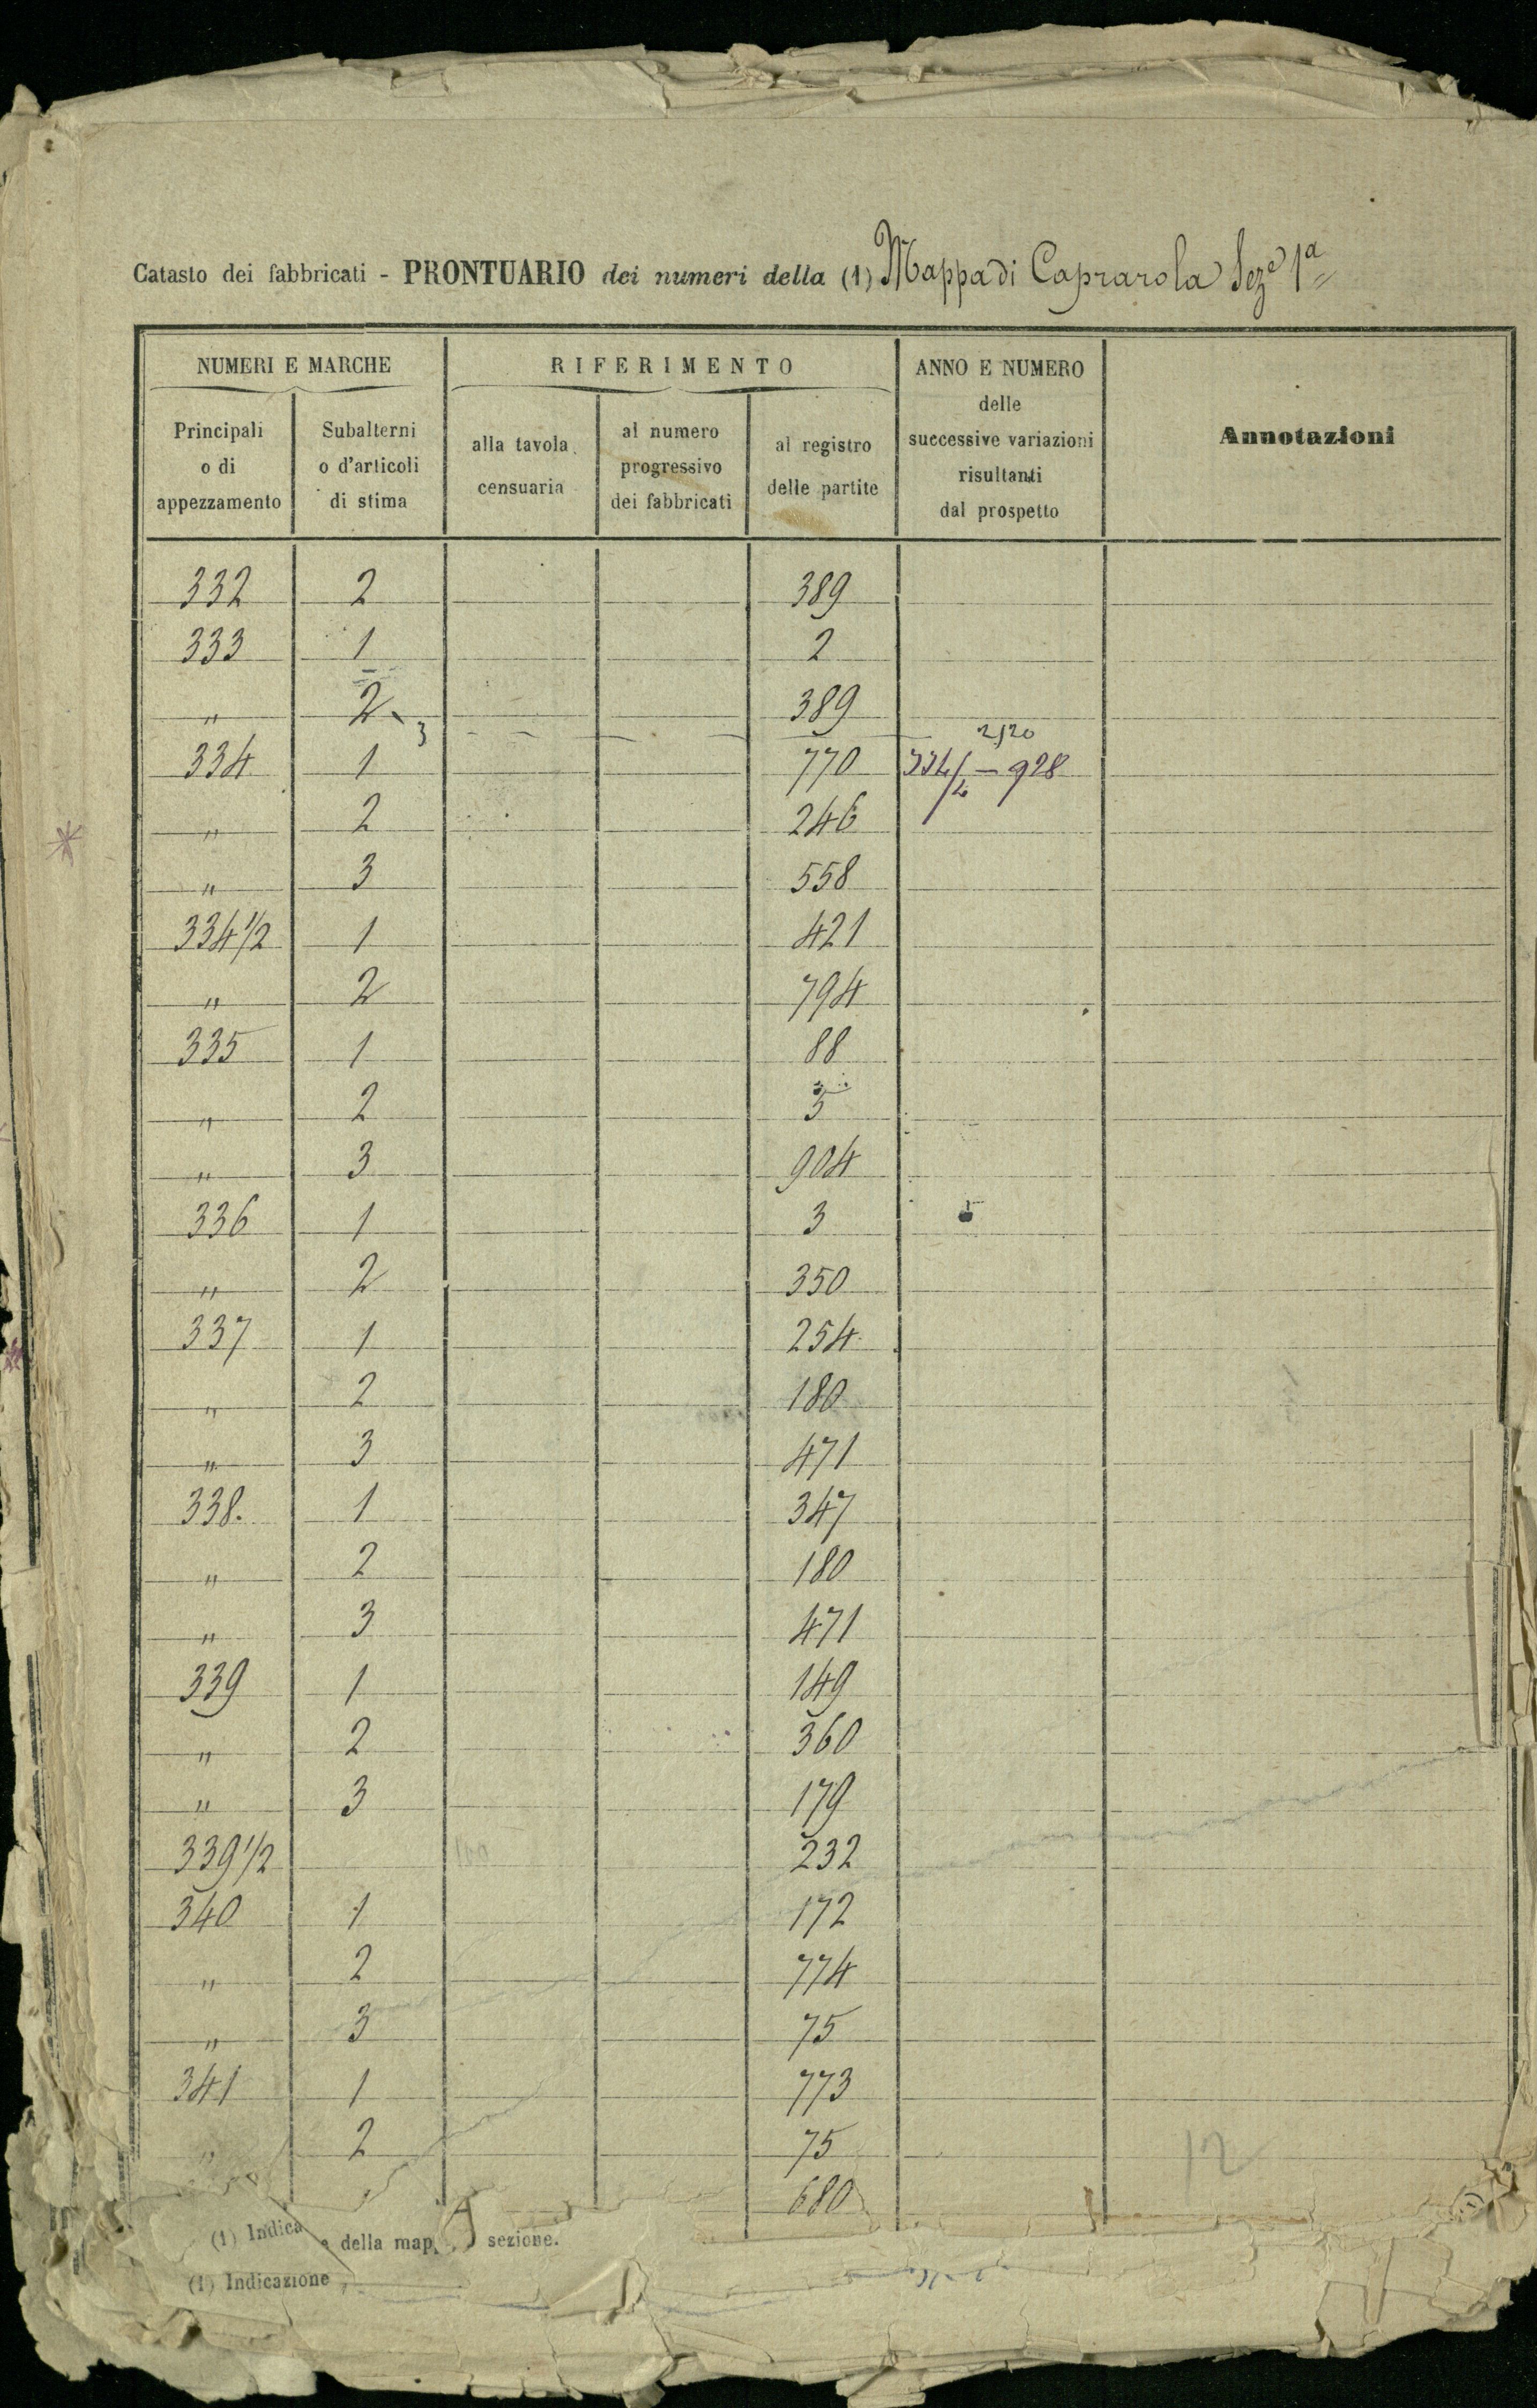 Catasto dei fabbricati - PRONTUARIO dei numeri della (1) Mappa di Caprarola Seze 1a
NUMERI E MARCHE
RIFERIMENTO
ANNO E NUMERO delle successive variazioni risultanti dal prospetto
Annotazioni
Principali o di appezzamento
Subalterni o d'articoli di stima
alla tavola censuaria
al numero progressivo dei fabbricati
al registro delle partite
332 2 389
333 1 2
" 2 389
3
2520
334 1 770 334/2 — 928
" 2 246
" 3 558
334 1/2 1 421
" 2 794
335 1 88
" 2 3
" 3 904
336 1 3
" 2 350
337 1 254
" 2 180
" 3 471
338. 1 347
" 2 180
" 3 471
339 1 149
" 2 360
" 3 179
339 1/2 232
340 1 172
" 2 774
" 3 75
341 1 773
" 2 75
680
12
(1) Indica della map sezione.
(1) Indicazione